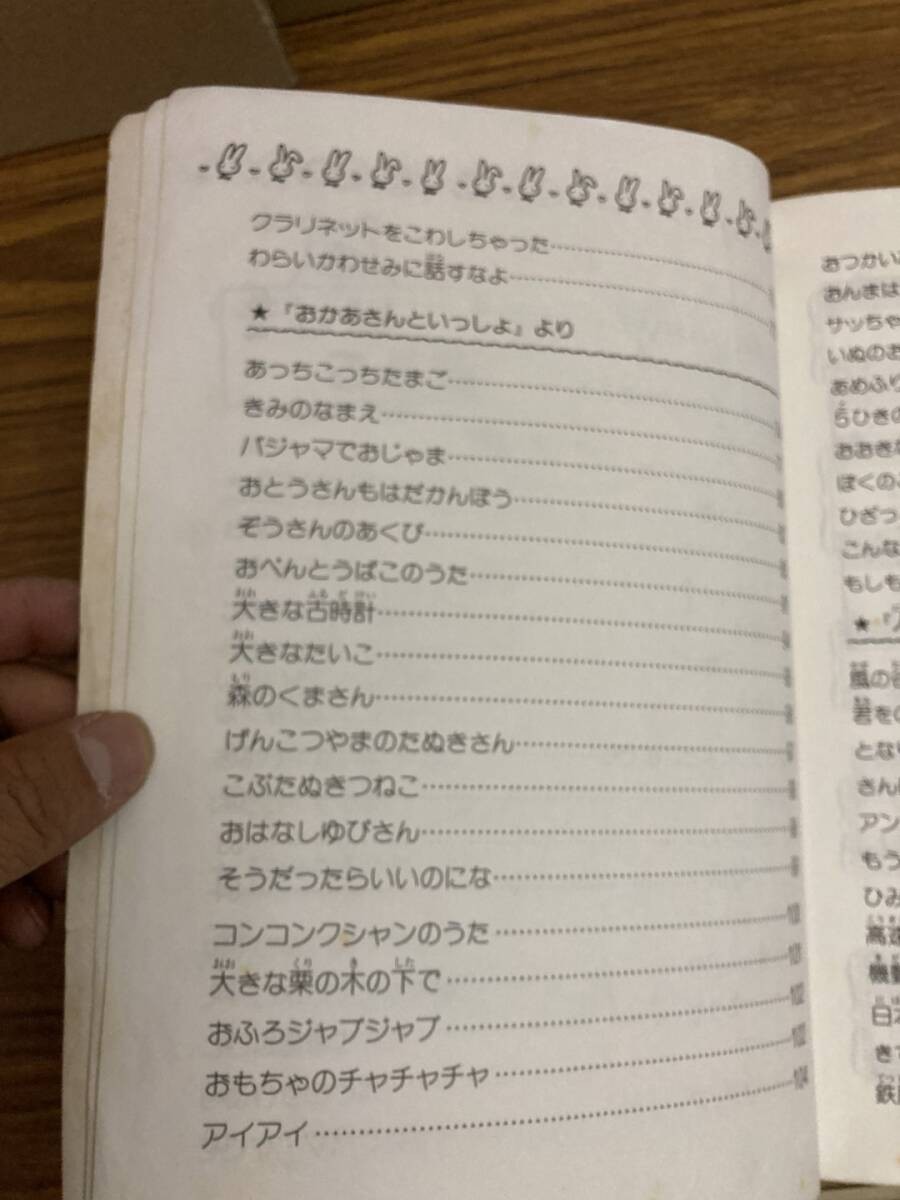 クラリネットをこわしちゃった
わらいかわせみに話すなよ
★「おかあさんといっしょ」より
あっちこっちたまご
きみのなまえ
パジャマでおじゃま
おとうさんもはだかんぼう
ぞうさんのあくび
おべんとうばこのうた
大きな古時計
大きなたいこ
森のくまさん
げんこつやまのたぬきさん
こぶたぬきつねこ
おはなしゆびさん
そうだったらいいのにな
コンコンクシャンのうた
大きな栗の木の下で
おふろジャブジャブ
おもちゃのチャチャチャ
アイアイ……104
おつかい
おんまは
サッちゃ
いぬのお
あめふり
5ひきの
おおきな
ぼくの
ひざっ
こんな
もしも
★「
風の
君を
とな
さん
アン
もう
ひみ
高速
機動
日本
きて
鉄